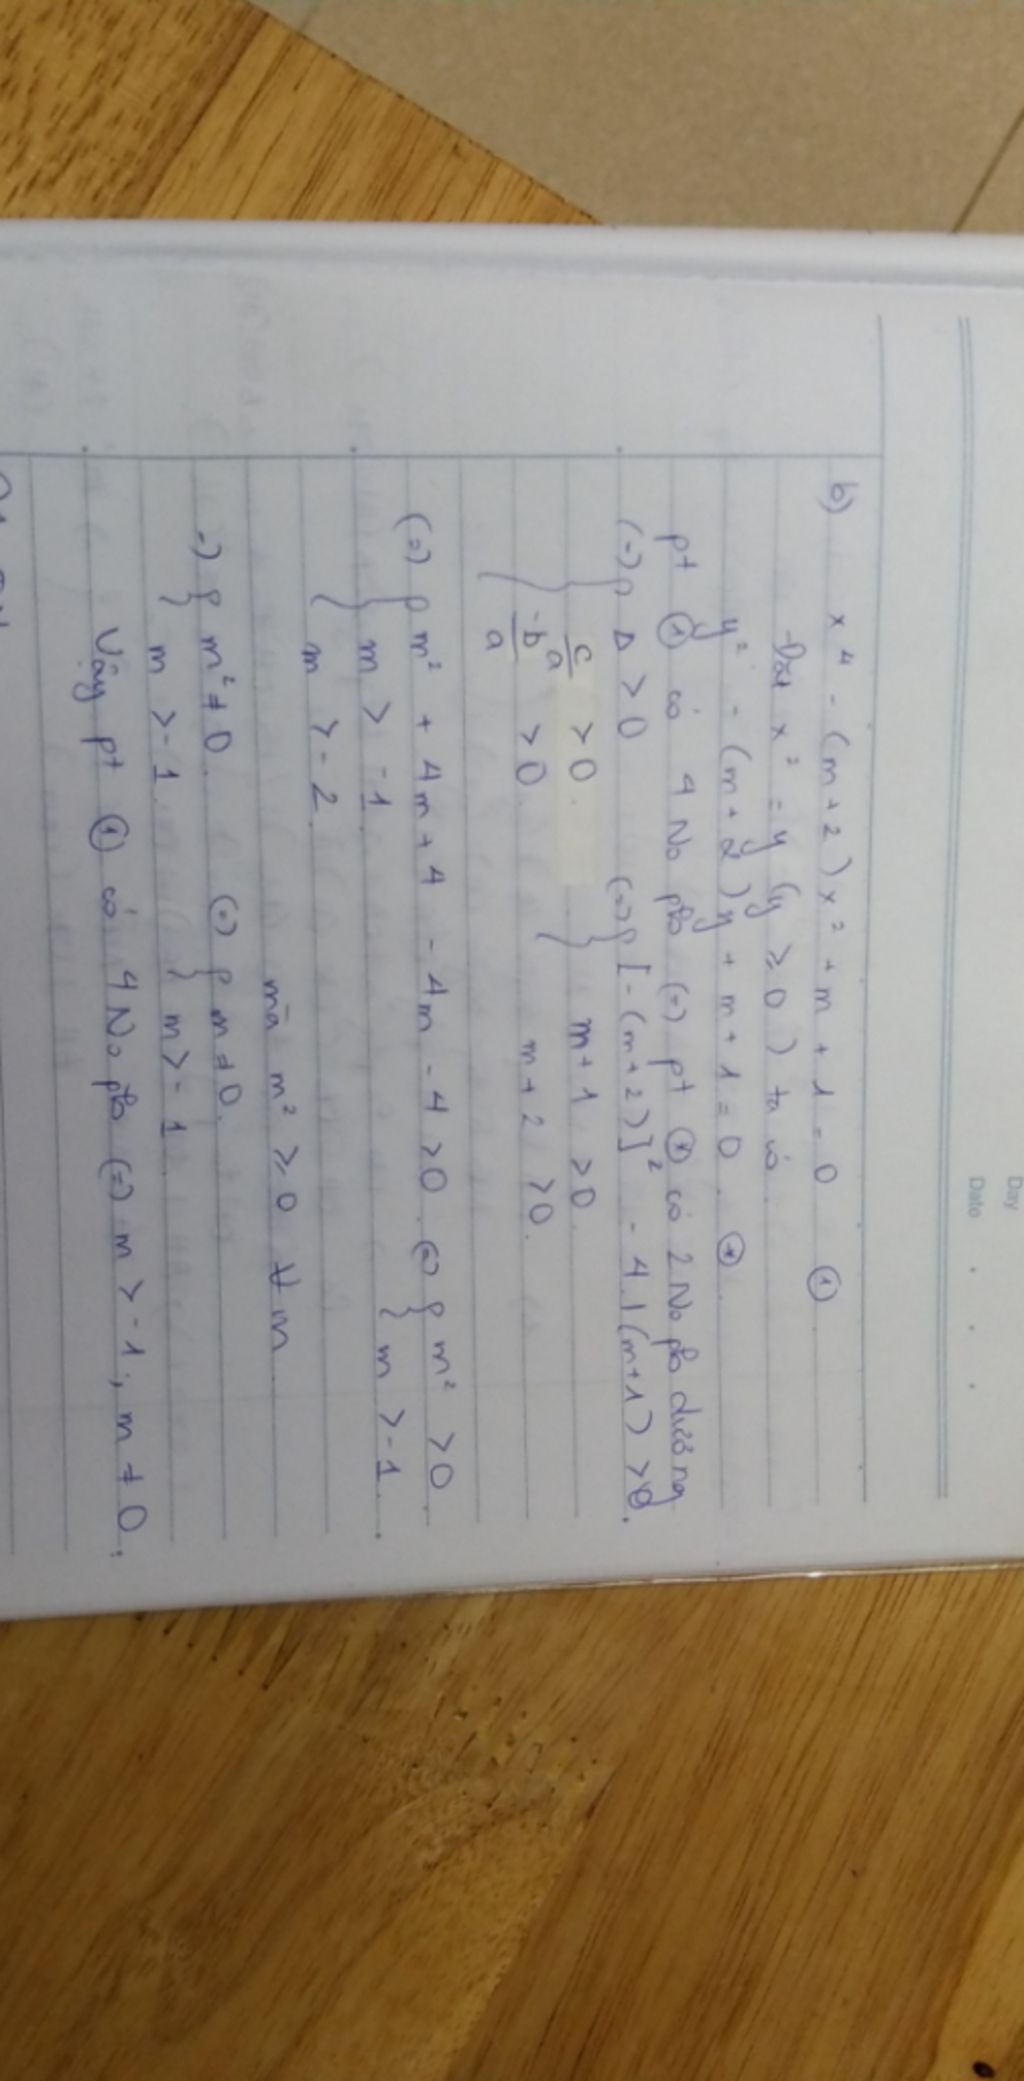 Day
Date
b) x⁴ - (m+2)x² + m + 1 = 0 ①
Đặt x² = y (y ≥ 0) ta có
y² - (m+2)y + m + 1 = 0 (*)
pt ① có 4 No pb (=) pt (*) có 2 No pb dương
(=) { Δ > 0 (=) { [-(m+2)]² - 4.1(m+1) > 0.
c/a > 0. m+1 > 0
-b/a > 0 m+2 > 0.
(=) { m² + 4m + 4 - 4m - 4 > 0. (=) { m² > 0
m > -1 m > -1.
m > -2
mà m² ≥ 0 ∀ m
=) { m² ≠ 0. (=) { m ≠ 0.
m > -1 m > -1
Vậy pt ① có 4 No pb (=) m > -1; m ≠ 0.